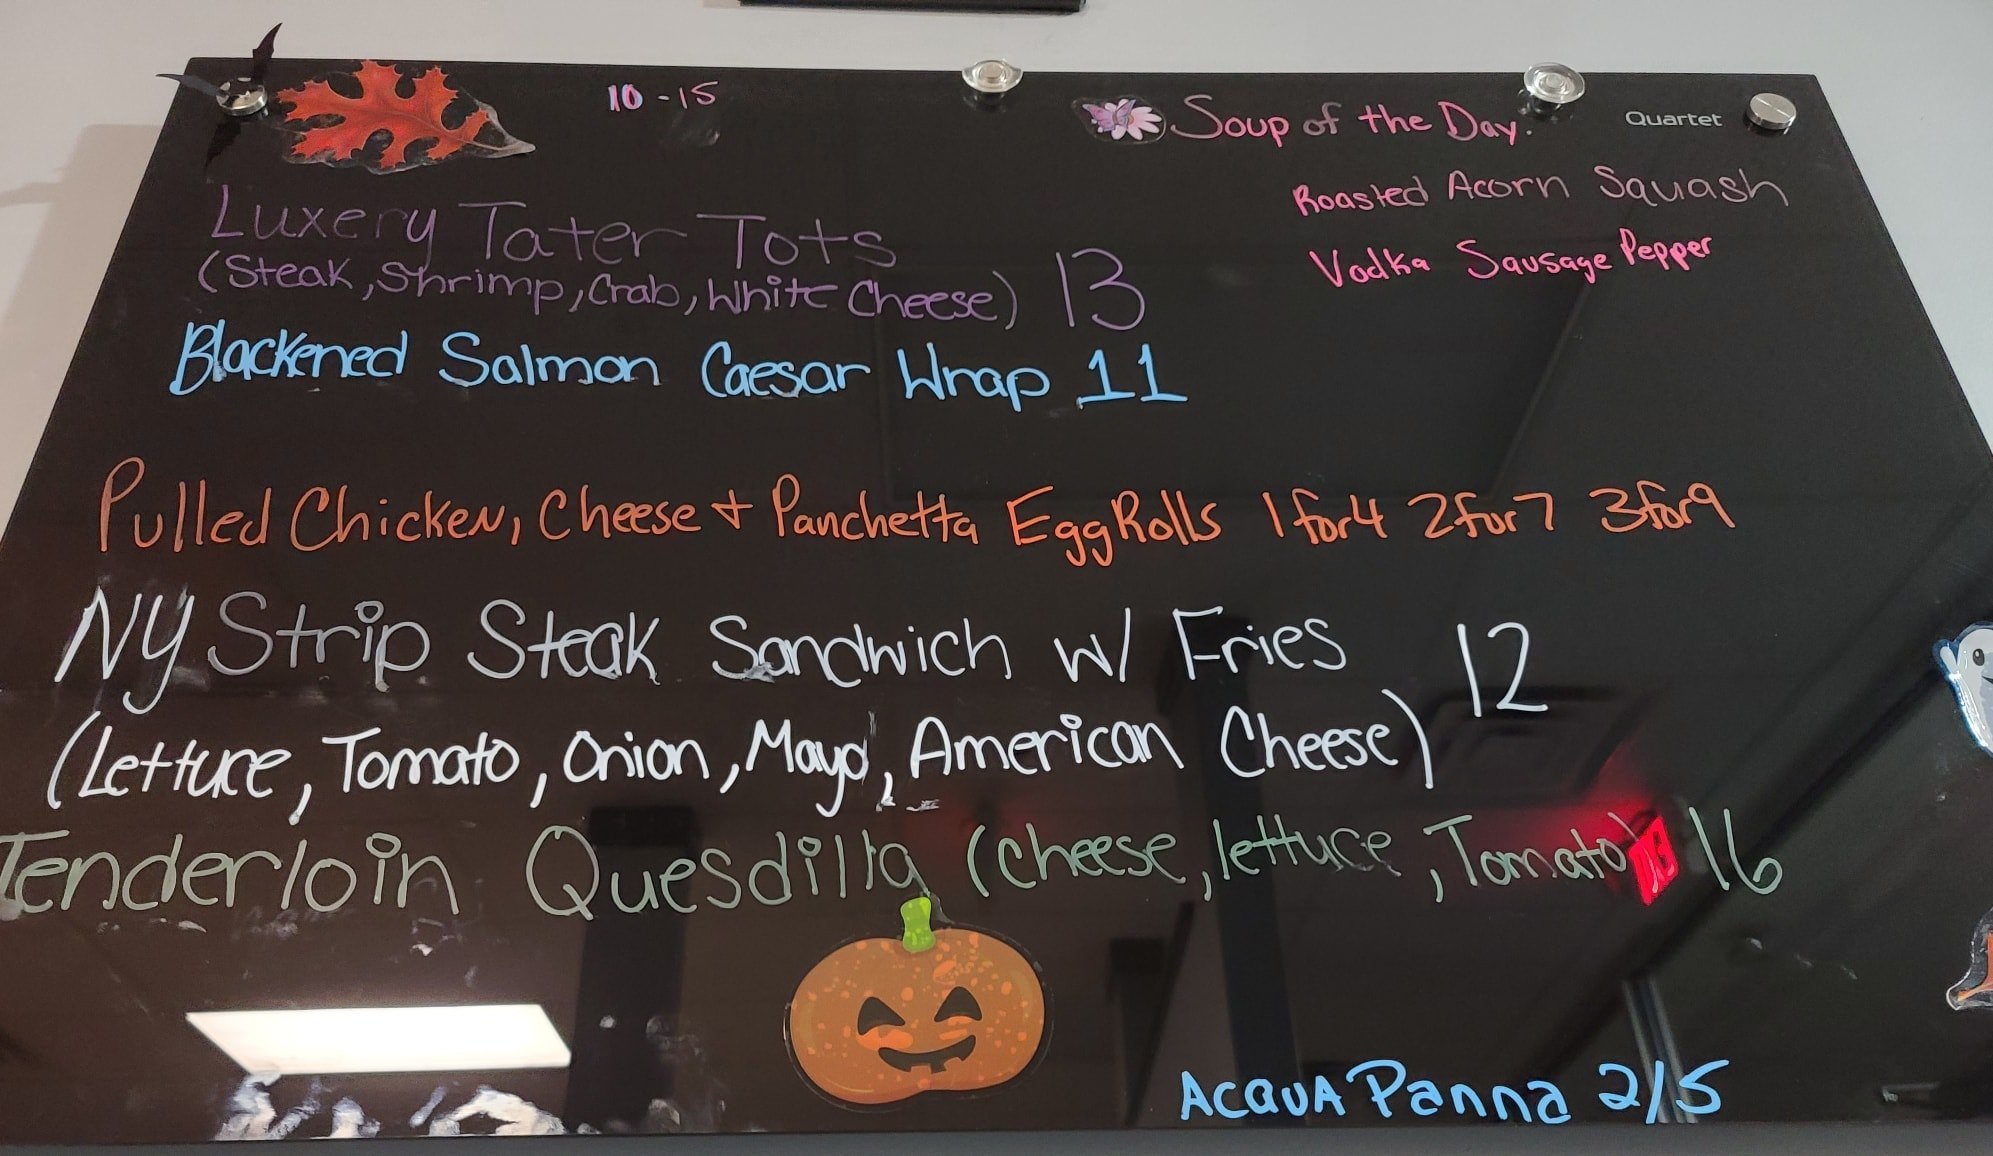 10-15
Soup of the Day:
Quartet
Roasted Acorn Squash
Vodka Sausage Pepper
Luxery Tater Tots
(Steak, Shrimp, Crab, White Cheese) 13
Blackened Salmon Caesar Wrap 11
Pulled Chicken, Cheese + Panchetta Egg Rolls 1 for 4 2 for 7 3 for 9
NY Strip Steak Sandwich w/ Fries 12
(Lettuce, Tomato, Onion, Mayo, American Cheese)
Tenderloin Quesdilla (Cheese, lettuce, Tomato) 16
Acqua Panna 2/5